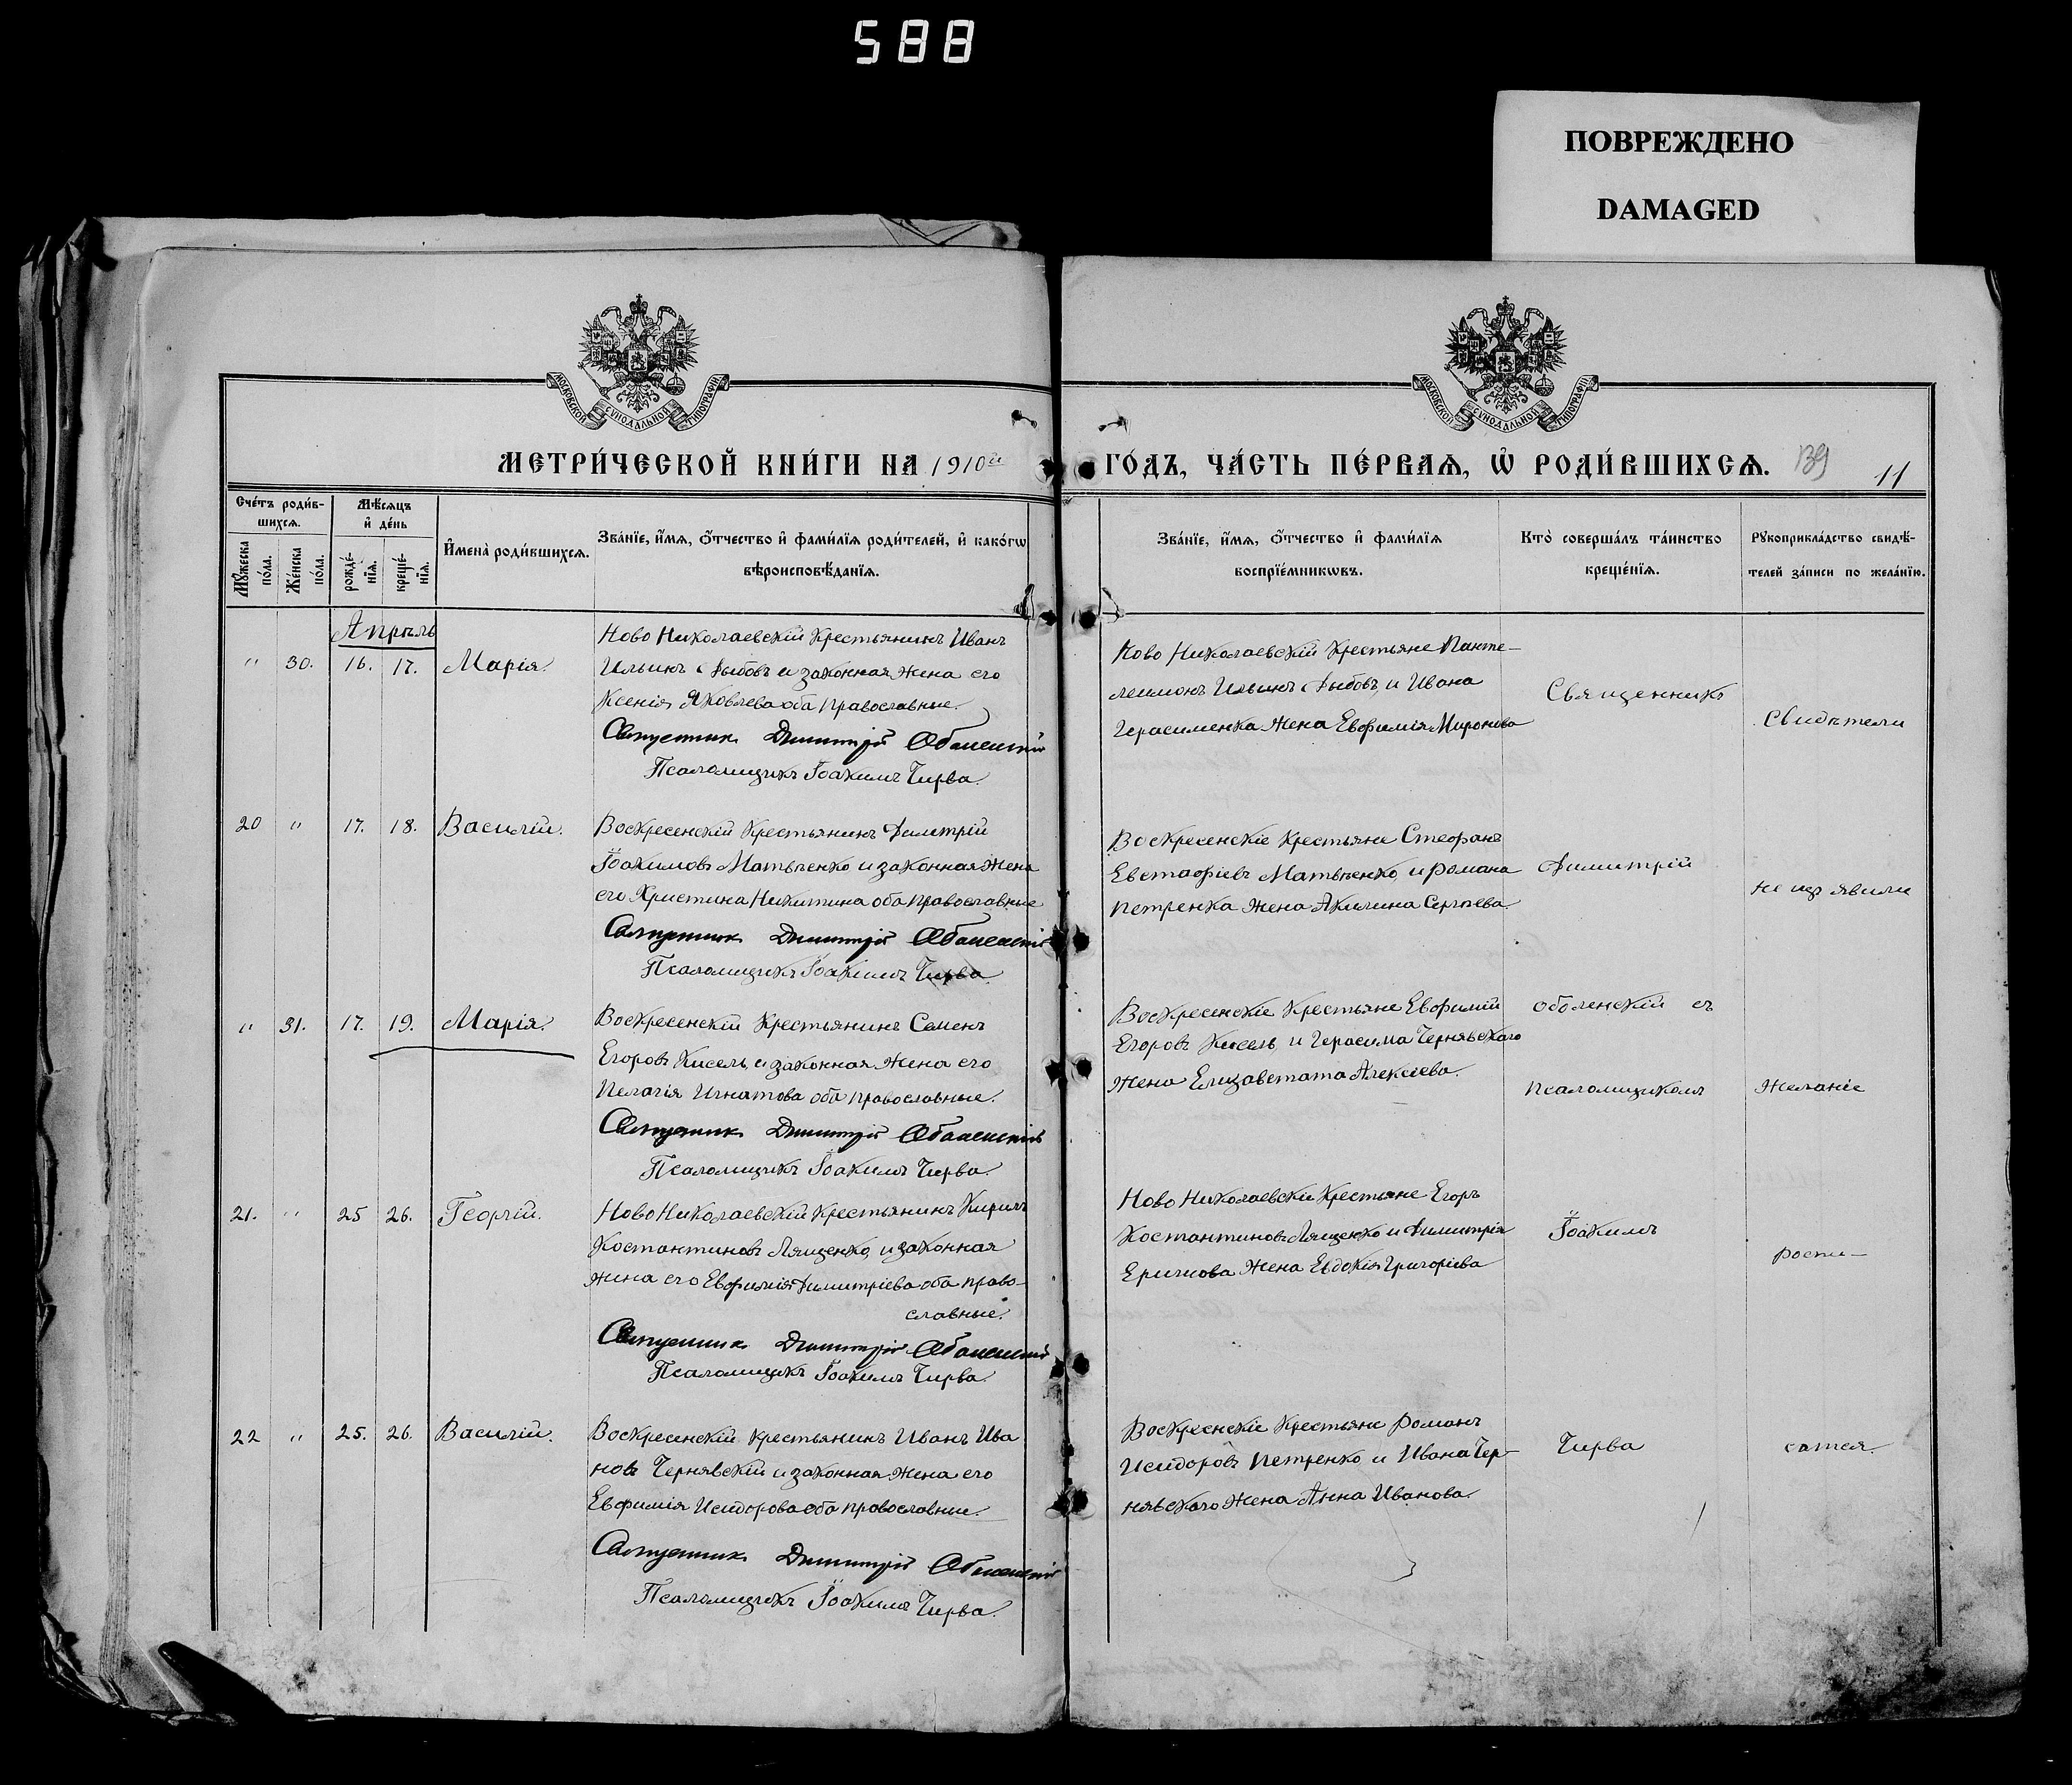 588
ПОВРЕЖДЕНО
DAMAGED
МОСКОВСКОЙ СУНОДАЛЬНОЙ ТИПОГРАФІИ
МОСКОВСКОЙ СУНОДАЛЬНОЙ ТИПОГРАФІИ
МЕТРИ́ЧЕСКОЙ КНИ́ГИ НА 1910й
ГО́ДЪ, ЧА́СТЬ ПЕ́РВАЯ, Ѡ҆ РОДИ́ВШИХСѦ. 11
Сче́тъ роди́в-
шихсѧ.
Мѣ́сѧцъ
и҆ де́нь
Мꙋ́жеска по́ла.
Же́нска по́ла.
рожде́-нїѧ.
креще́-нїѧ.
И҆мена̀ роди́вшихсѧ.
Зва́нїе, и҆́мѧ, ѻ҆́тчество и҆ фами́лїѧ роди́телей, и҆ како́гѡ
вѣроисповѣ́данїѧ.
Зва́нїе, и҆́мѧ, ѻ҆́тчество и҆ фами́лїѧ
воспрїе́мникѡвъ.
Кто̀ соверша́лъ та́инство
креще́нїѧ.
Рꙋкоприкла́дство свидѣ́-
телей за́писи по жела́нїю.
Апрѣль
" 30. 16. 17. Марія.
Ново Николаевскій крестьянинъ Иванъ
Ильинъ Дыбовъ и законная жена его
Ксенія Яковлева оба православные.
Священник Димитрій Оболенскій
Псаломщикъ Іоакимъ Чирва.
Ново Николаевскій крестьяне Панте-
леимонъ Ильинъ Дыбовъ, и Ивана
Герасименка жена Евфимія Миронова
Священникъ
Свидѣтели
20 " 17. 18. Василій.
Воскресенскій крестьянинъ Димитрій
Іоакимовъ Матвѣенко и законная жена
его Христина Никитина оба православные
Священник Димитрій Оболенскій
Псаломщикъ Іоакимъ Чирва.
Воскресенскіе крестьяне Стефанъ
Евстафіевъ Матвѣенко, и Романа
Петренка жена Акилина Сергѣева.
Димитрій
не изъявили
" 31. 17. 19. Марія.
Воскресенскій крестьянинъ Семенъ
Егоровъ Кисель, и законная жена его
Пелагія Игнатова оба православные.
Священник Димитрій Оболенскій
Псаломщикъ Іоакимъ Чирва.
Воскресенскіе крестьяне Евфимій
Егоровъ Кисель, и Герасима Чернявскаго
жена Елизаветата Алексіева.
Оболенскій съ
псаломщикомъ
желаніе
21. " 25 26. Георгій.
Ново Николаевскій крестьянинъ Кирилъ
Костантиновъ Лященко, и законная
жена его Евфимія Димитріева оба право-
славные.
Священник Димитрій Оболенскій
Псаломщикъ Іоакимъ Чирва.
Ново Николаевскіе крестьяне Егоръ
Костантиновъ Лященко и Димитрія
жена Евдокія Григоріева
Іоакимъ
роспи-
22 " 25. 26. Василій.
Воскресенскій крестьянинъ Иванъ Ива
новъ Чернявскій и законная жена его
Евфимія Исидорова оба православные.
Священник Димитрій Оболенскій
Псаломщикъ Іоакимъ Чирва.
Воскресенскіе крестьяне Романъ
Исидоровъ Петренко и Ивана Чер-
нявскаго жена Анна Иванова.
Чирва
сатся.